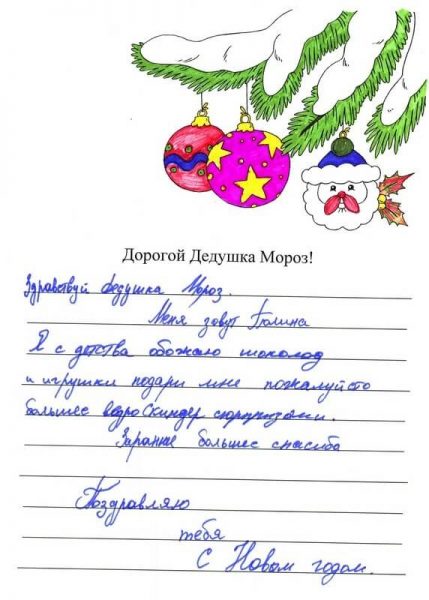 Дорогой Дедушка Мороз!
Здравствуй дедушка Мороз.
Меня зовут
Я с детства обожаю шоколад
и игрушки подари мне пожалуйсто
большес ведро Скиндер сюрпризами.
большес спасиба
Поздравляю
тебя
С Новым годом.